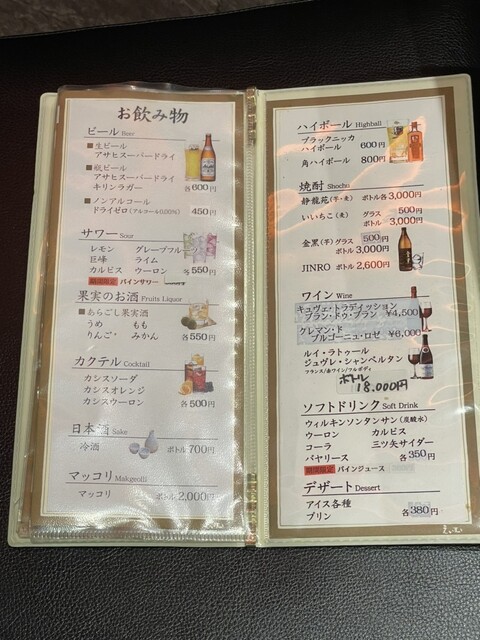 お飲み物
ビール Beer
■生ビール
アサヒスーパードライ
■瓶ビール
アサヒスーパードライ
キリンラガー 各600円
■ノンアルコール
ドライゼロ(アルコール0.00%) 450円
サワー Sour
レモン グレープフルーツ
巨峰 ライム
カルピス ウーロン 各550円
期間限定 パインサワー
果実のお酒 Fruits Liquor
■あらごし果実酒
うめ もも
りんご みかん 各550円
カクテル Cocktail
カシスソーダ
カシスオレンジ
カシスウーロン 各500円
日本酒 Sake
冷酒 ボトル700円
マッコリ Makgeolli
マッコリ ボトル2,000円
ハイボール Highball
ブラックニッカ
ハイボール 600円
角ハイボール 800円
焼酎 Shochu
静龍苑(芋・麦) ボトル各3,000円
いいちこ(麦) グラス 500円
ボトル 3,000円
金黒(芋) グラス 500円
ボトル 3,000円
JINRO ボトル 2,600円
ワイン Wine
キュヴェ・トラディッション
ブラン・ドゥ・ブラン ¥4,500
クレマン・ド
ブルゴーニュ・ロゼ ¥6,000
ルイ・ラトゥール
ジュヴレ・シャンベルタン
フランス/赤ワイン/フルボディ
ボトル
18.000円
ソフトドリンク Soft Drink
ウィルキンソンタンサン(炭酸水)
ウーロン カルピス
コーラ 三ツ矢サイダー
バヤリース 各350円
期間限定 パインジュース
デザート Dessert
アイス各種
プリン 各380円